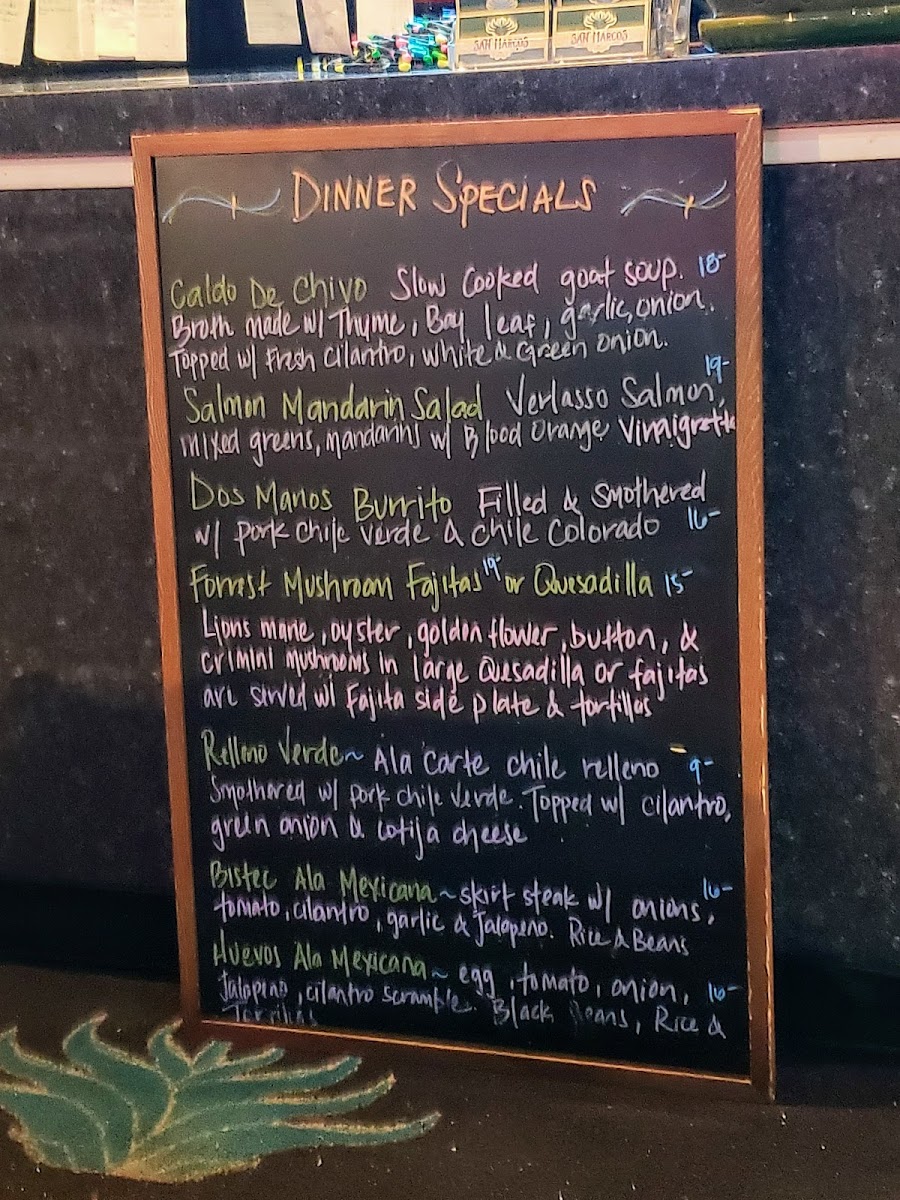 SAN MARCOS SAN MARCOS
DINNER SPECIALS
Caldo De Chivo Slow Cooked goat soup. 18-
Broth made w/ Thyme, Bay leaf, garlic, onion.
Topped w/ Fresh Cilantro, White & Green onion.
Salmon Mandarin Salad Verlasso Salmon, 19-
mixed greens, mandarins w/ Blood Orange Vinaigrette
Dos Manos Burrito Filled & Smothered
w/ pork chile verde & chile Colorado 16-
Forrest Mushroom Fajitas 19- or Quesadilla 15-
Lions mane, oyster, golden flower, button, &
crimini mushrooms in large Quesadilla or fajitas
are served w/ Fajita side plate & tortillas
Relleno Verde~ Ala Carte chile relleno 9-
Smothered w/ pork chile verde. Topped w/ cilantro,
green onion & cotija cheese
Bistec Ala Mexicana~ skirt steak w/ onions, 16-
tomato, cilantro, garlic & Jalapeno. Rice & Beans
Huevos Ala Mexicana~ egg, tomato, onion, 16-
Jalapeno, cilantro scramble. Black Beans, Rice &
Tortillas